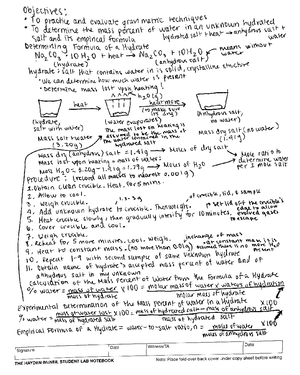 Objectives:
• To practice and evaluate gravimetric techniques
• To determine the mass percent of water in an unknown hydrated salt and its empirical formula
hydrated salt + heat → anhydrous salt + water
Determining Formula of a Hydrate
Na2CO3 · 10H2O + heat → Na2CO3 + 10H2O
means without water
(hydrate) (anhydrous salt)
hydrate: salt that contains water in its solid, crystalline structure
• We can determine how much water is present
• Determine mass lost upon heating!
↑ H2O(g)
heat → heat more
(no more mass loss)
(hydrate, salt with water)
The mass loss on heating is assumed to be the mass of the water contained in the hydrated salt
(anhydrous salt, no water)
Mass salt + water (3.20g)
Mass dry salt (no water) (1.41g)
Mass dry (anhydrous) salt = 1.41g → Moles of dry salt
Mass lost upon heating = mass of water:
→ Moles of H2O
Mole ratio to determine water per 1 mole salt
Procedure: (record all mass to nearest 0.001g)
1. Obtain clean crucible. Heat for 5 mins.
2. Allow to cool.
3. Weigh crucible.
4. Add unknown hydrate to crucible. Then weigh.
5. Heat crucible slowly, then gradually intensify for 10 minutes.
6. Cover crucible and cool.
7. Weigh crucible.
8. Repeat for 5 more minutes. Cool. Weigh.
9. Heat to constant mass. (no more than 0.01g)
10. Repeat 1-9 with second sample of same unknown hydrate
11. Obtain name of hydrate's accepted mass percent of water and of anhydrous salt in the unknown
Calculation of the Mass Percent of Water from the Formula of a Hydrate
% water = mass of water / mass of hydrate x 100 = molar mass of water x waters of hydration / Molar mass of hydrate x100
Experimental Determination of the Mass Percent of Water in a Hydrate
% water = mass of water lost / mass of hydrated salt x 100 = mass of hydrated salt - mass of anhydrous salt / mass of hydrated salt x100
Empirical Formula of a Hydrate = water-to-salt ratio, n = moles of water / moles of anhydrous salt
Signature Date Witness/TA Date
THE HAYDEN-McNEIL STUDENT LAB NOTEBOOK
Note: Place fold-over back cover under copy sheet before writing